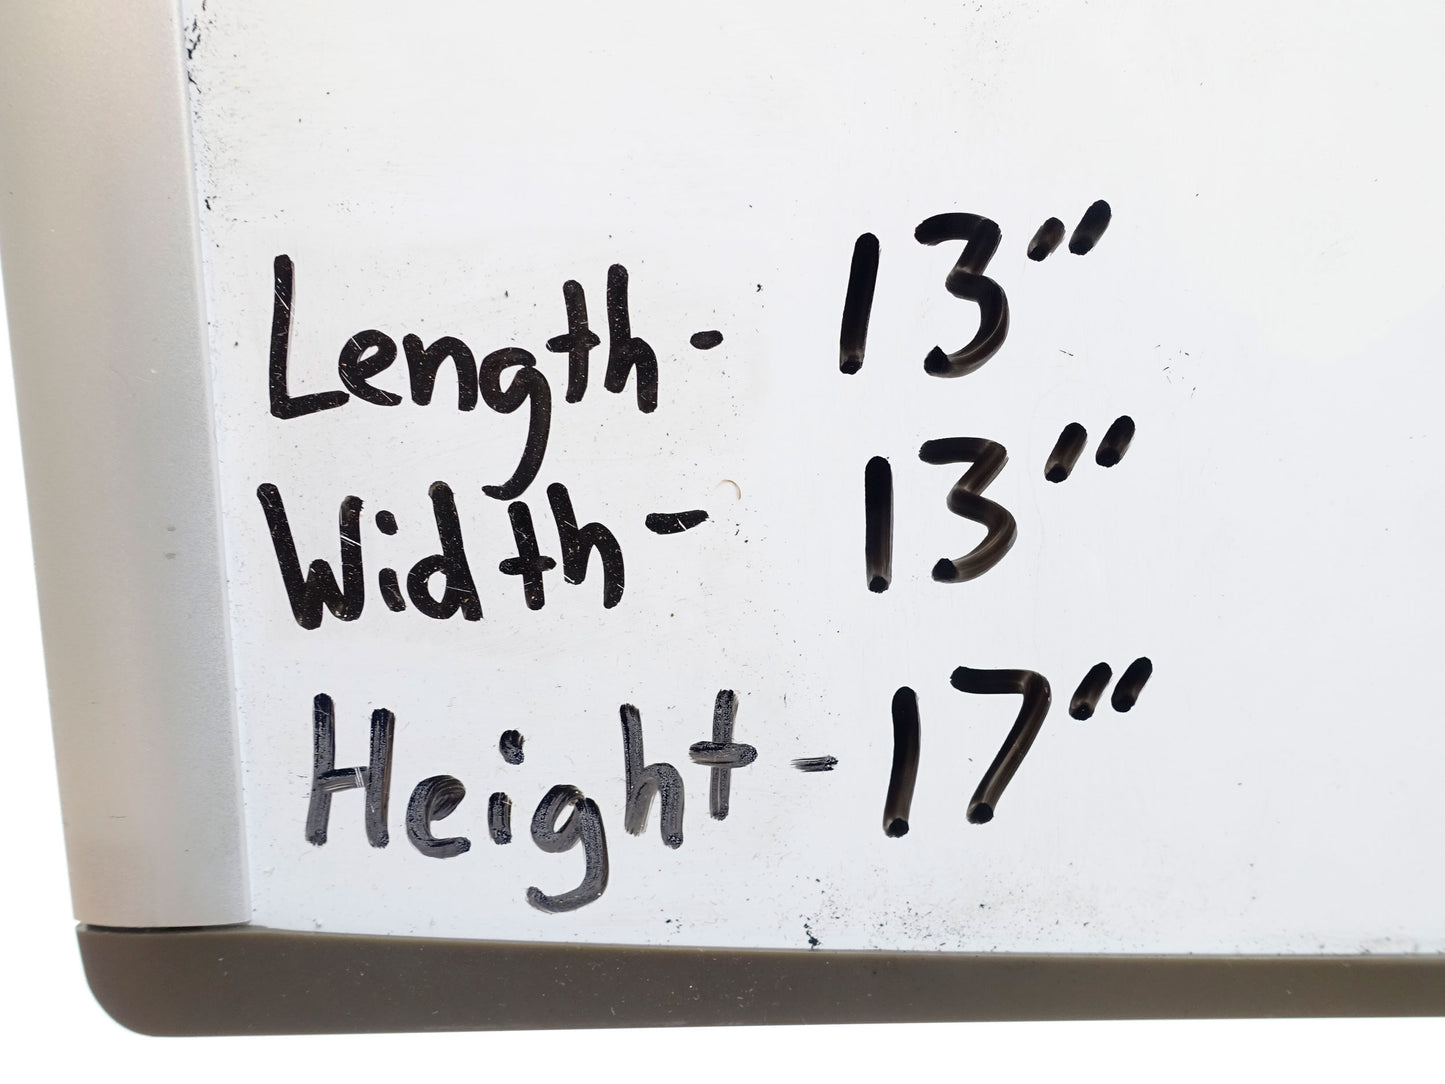 Length- 13"
Width- 13"
Height- 17"